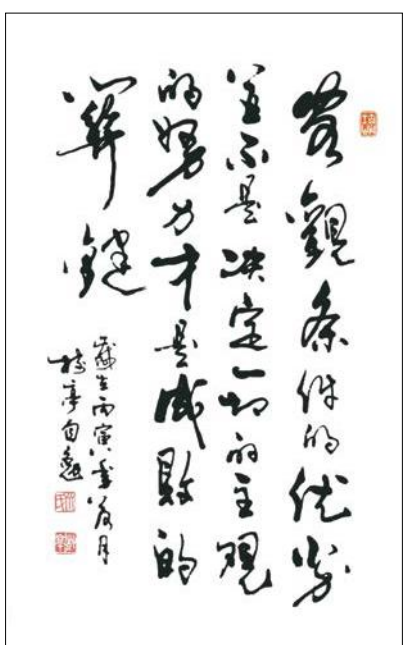 客觀条件的优劣
並不是决定一切的主观
的努力才是成敗的
關鍵
歲在丙寅年八月
梅亭自勉